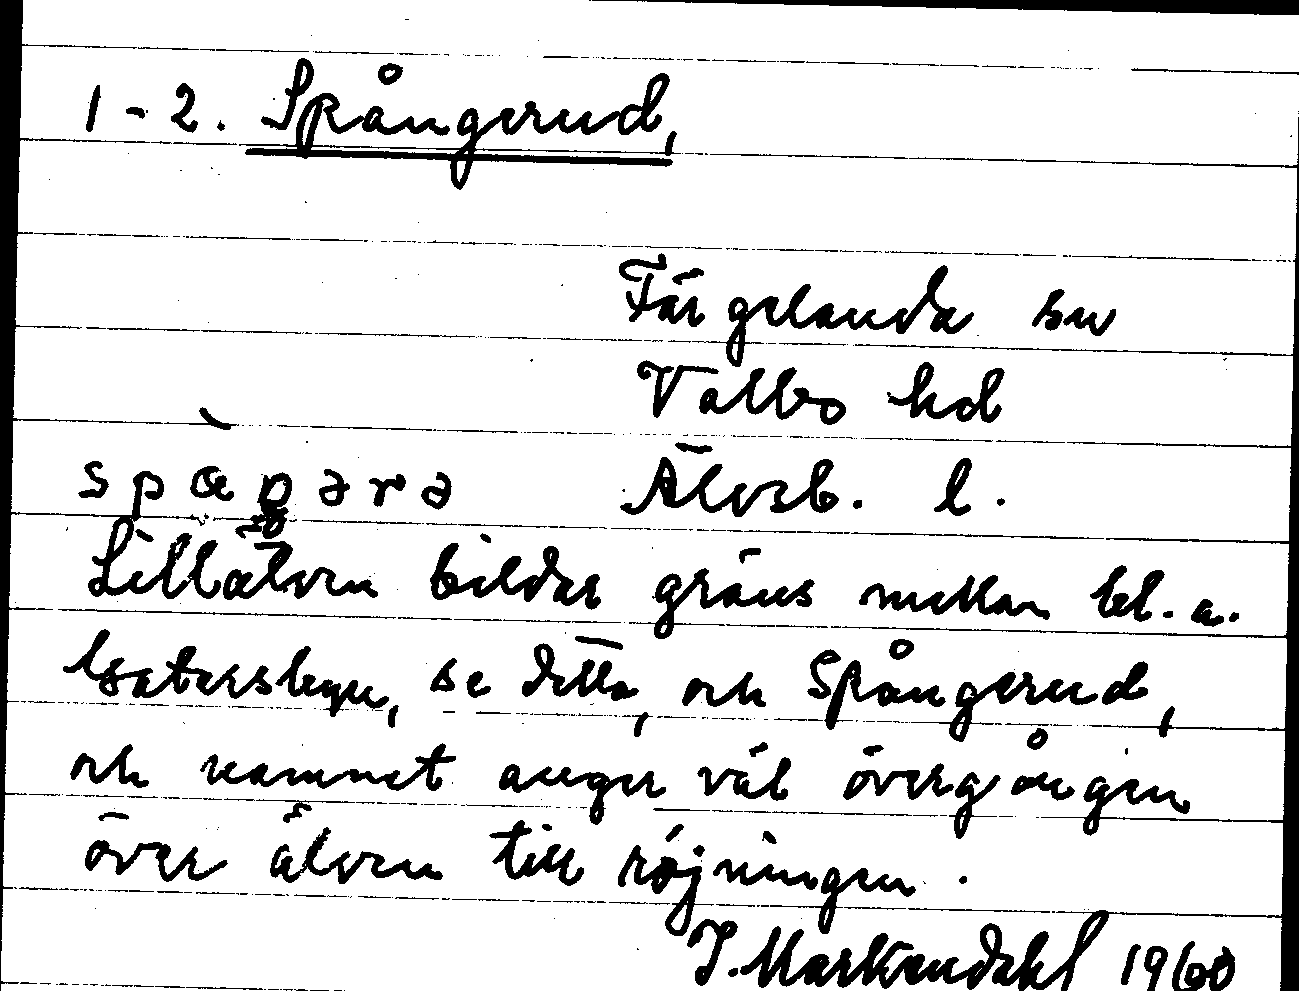 1-2. Spångerud,
Färgelanda sn
Valbo hd
Älvsb. l.
Lillälven bildar gräns mellan bl. a.
se detta, och Spångerud,
och namnet anger väl övergången
över älven till röjningen.
J. Markendahl 1960